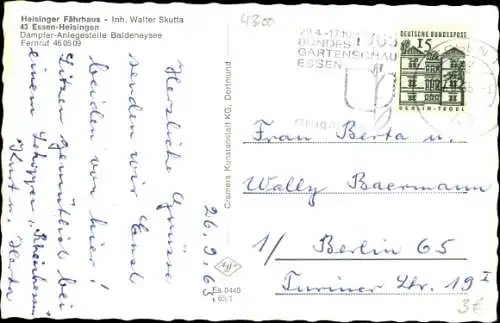 Heisinger Fährhaus - Inh. Walter Skutta
43 Essen-Heisingen
Dampfer-Anlegestelle Baldeneysee
Fernruf 46 05 09
4300
29.4.-17.10.
BUNDES
GARTENSCHAU
ESSEN
DEUTSCHE BUNDESPOST
15
BERLIN-TEGEL
26.9.65
Herzliche Grüsse
senden wir Euch
beiden von hier!
Sitzen gemütlich bei
einem Schoppen „Rheinwein"
Kurt u. Herta
Cramers Kunstanstalt KG, Dortmund
Es 0440
65/1
Frau Berta u.
Wally Baermann
1/ Berlin 65
Turiner Str. 19 I
3€